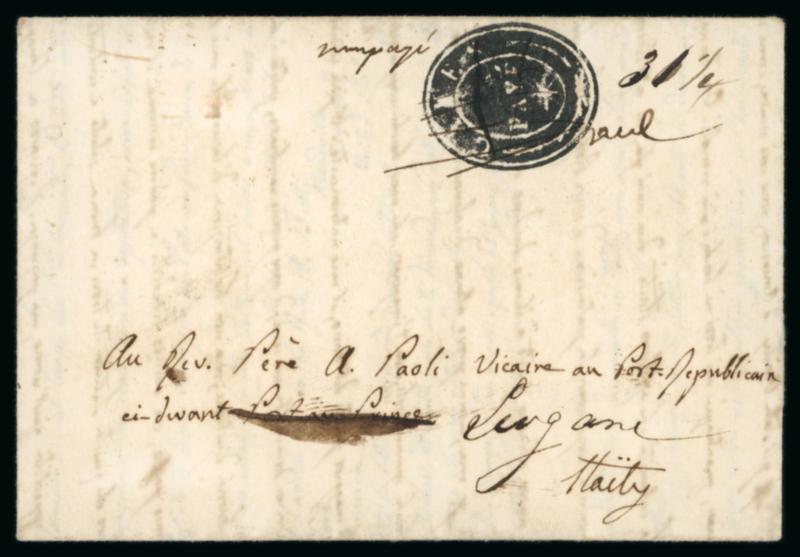 31 1/4
PAYÉ
Au Rev. Père A. Paoli Vicaire au Port-Republicain
ci-dvant Port au Prince
Leogane
Haïty